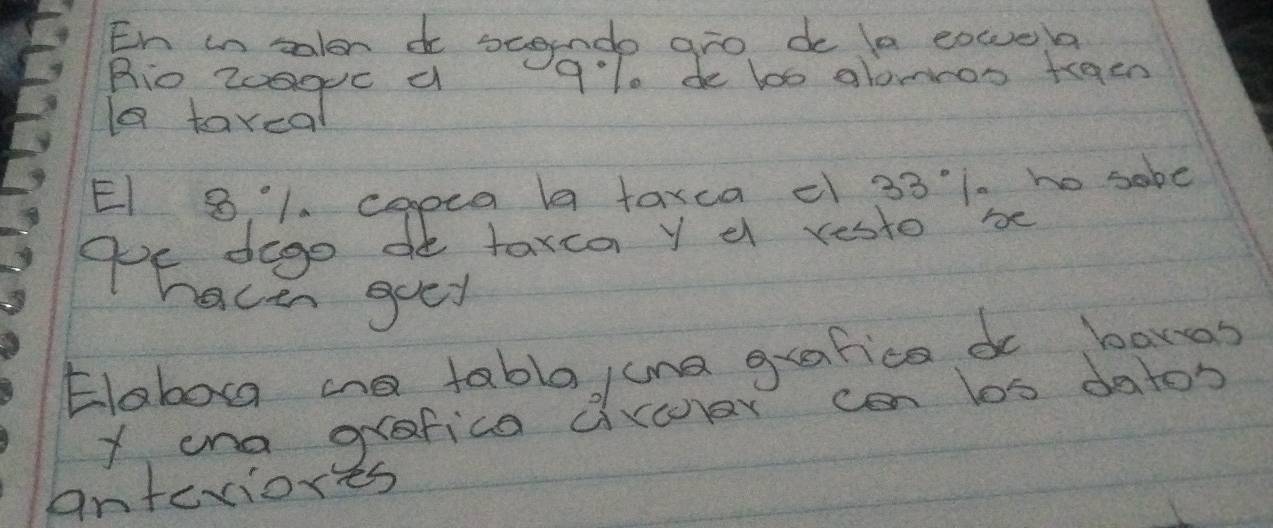 En un salon de segundo año de la escuela
Rio Zuaque el 9% de los alumnos traen
la tarea
El 8% capea la tarea el 33% no sabe
que dego de tarea y el resto se
hacen guey
Elabora una tabla, una grafica de barras
y una grafica circular con los datos
anteriores